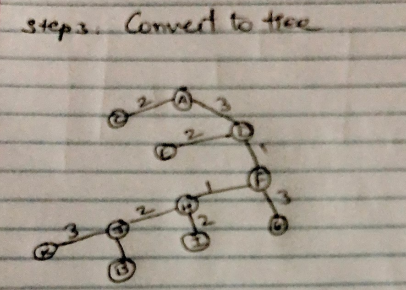 step 3. Convert to tree
A
2
3
D
2
1
F
1
3
H
2
2
3
I